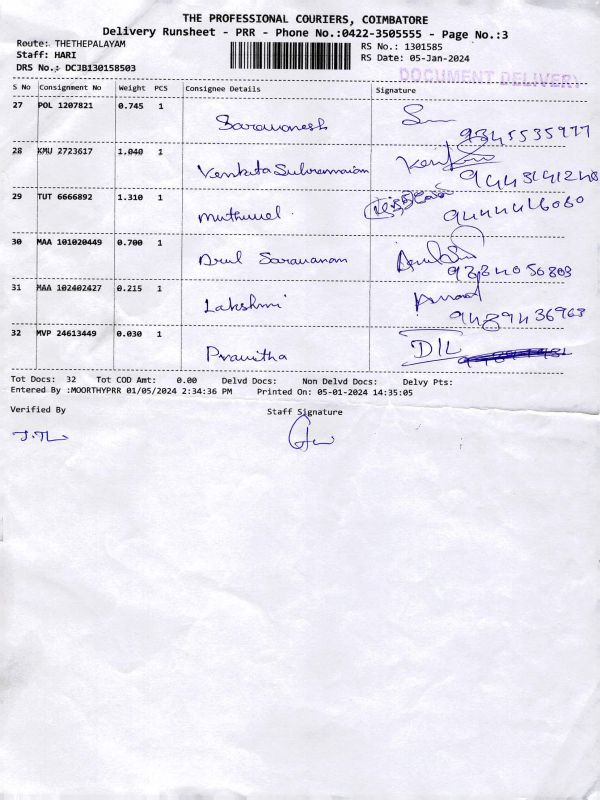 THE PROFESSIONAL COURIERS, COIMBATORE
Delivery Runsheet - PRR - Phone No.:0422-3505555 - Page No.:3
Route: THETHEPALAYAM
Staff: HARI
DRS No.: DCJB130158503
RS No.: 1301585
RS Date: 05-Jan-2024
DOCUMENT DELIVERY
S No Consignment No Weight PCS Consignee Details Signature
27 POL 1207821 0.745 1 Saravanesh
9345535977
28 KMU 2723617 1.040 1 Venkata Subramaniam
29 TUT 6666892 1.310 1 Muthuvel
9444416060
30 MAA 101020449 0.700 1 Arul Saravanam
31 MAA 102402427 0.215 1 Lakshmi
9489436963
32 MVP 24613449 0.030 1 Pravitha D/L
Tot Docs: 32 Tot COD Amt: 0.00 Delvd Docs: Non Delvd Docs: Delvy Pts:
Entered By :MOORTHYPRR 01/05/2024 2:34:36 PM Printed On: 05-01-2024 14:35:05
Verified By Staff Signature